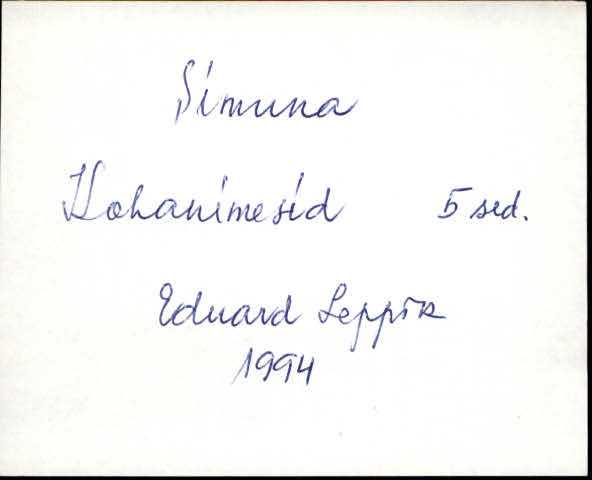 Simuna
Kohanimesid 5 sed.
Eduard Leppik
1994